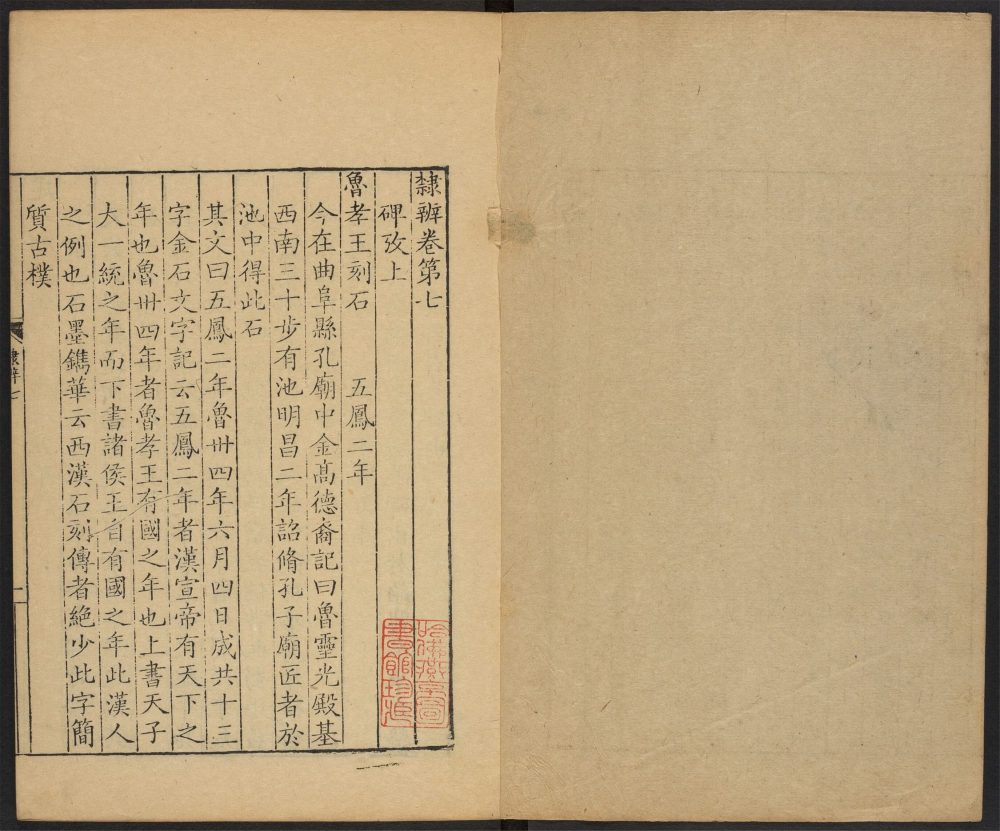 隸辨卷第七
碑攷上
魯孝王刻石 五鳳二年
今在曲阜縣孔廟中金高德裔記曰魯靈光殿基
西南三十步有池明昌二年詔脩孔子廟匠者於
池中得此石
其文曰五鳳二年魯卅四年六月四日成共十三
字金石文字記云五鳳二年者漢宣帝有天下之
年也魯卅四年者魯孝王有國之年也上書天子
大一統之年而下書諸侯王自有國之年此漢人
之例也石墨鐫華云西漢石刻傳者絕少此字簡
質古樸
隸辨七
一
哈佛燕京圖
書館珍藏